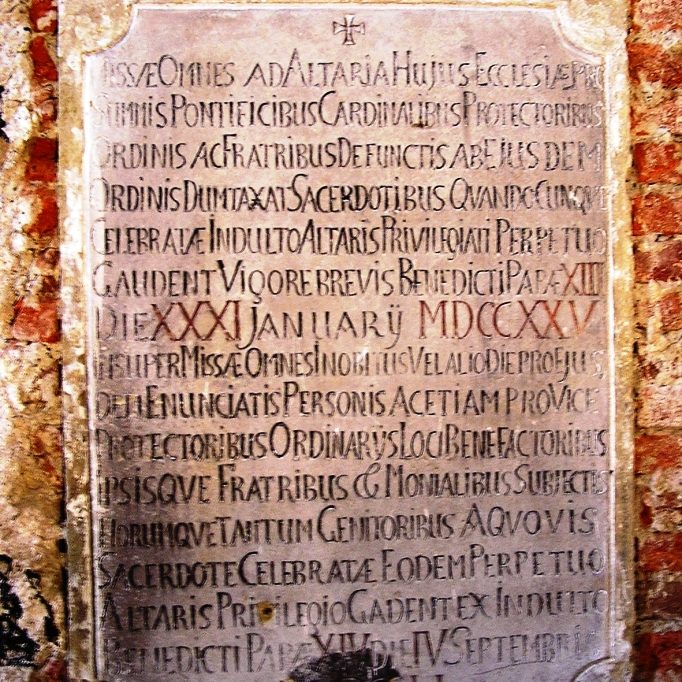 MISSÆ OMNES AD ALTARIA HUJUS ECCLESIÆ PRO
SUMMIS PONTIFICIBUS CARDINALIBUS PROTECTORIBUS
ORDINIS AC FRATRIBUS DEFUNCTIS AB EJUS DEM
ORDINIS DUMTAXAT SACERDOTIBUS QVANDOCUNQUE
CELEBRATÆ INDULTO ALTARIS PRIVILEGIATI PERPETUO
GAUDENT VIGORE BREVIS BENEDICTI PAPÆ XIII
DIE XXXI JANUARIJ MDCCXXV
INSUPER MISSÆ OMNES IN OBITUS VEL ALIO DIE PRO EJUS
DEM ENUNCIATIS PERSONIS AC ETIAM PRO VICE
PROTECTORIBUS ORDINARIJS LOCI BENEFACTORIBUS
IPSISQVE FRATRIBUS & MONIALIBUS SUBJECTIS
HORUMQVE TANTUM GENITORIBUS A QVOVIS
SACERDOTE CELEBRATÆ EODEM PERPETUO
ALTARIS PRIVILEGIO GADENT EX INDULTO
BENEDICTI PAPÆ XIV DIE IV SEPTEMBRIS